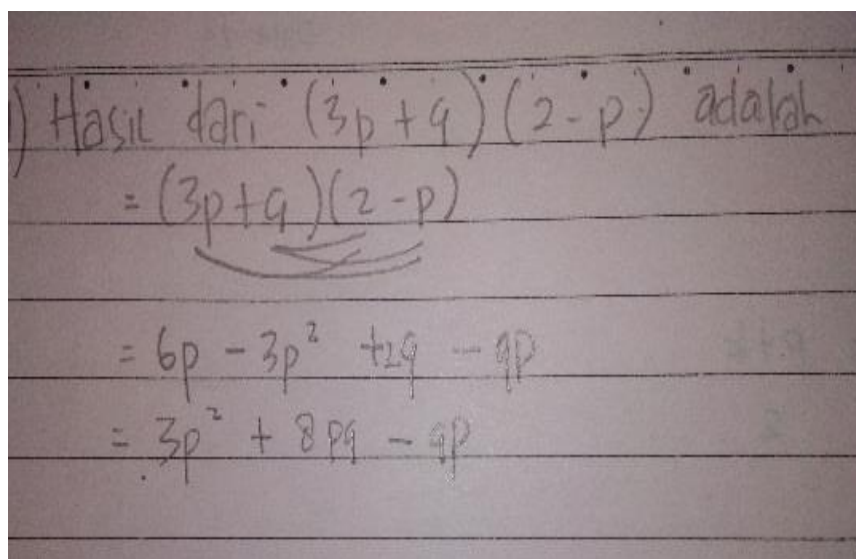 ) Hasil dari (3p + q) (2 - p) adalah
= (3p + q)(2 - p)
= 6p - 3p² + 2q - qp
= 3p² + 8pq - qp